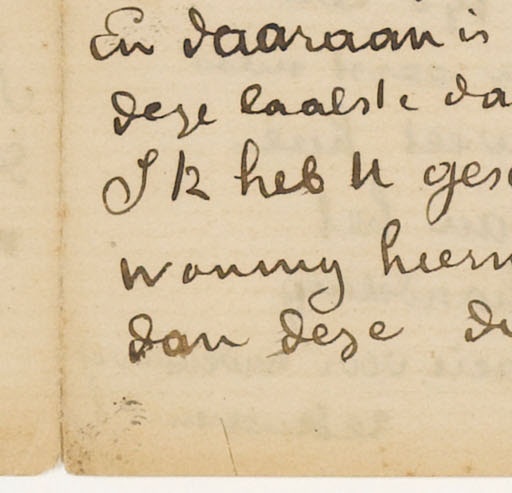 En daaraan is
deze laatste da
Ik heb U gesc
woning hiern
dan deze de